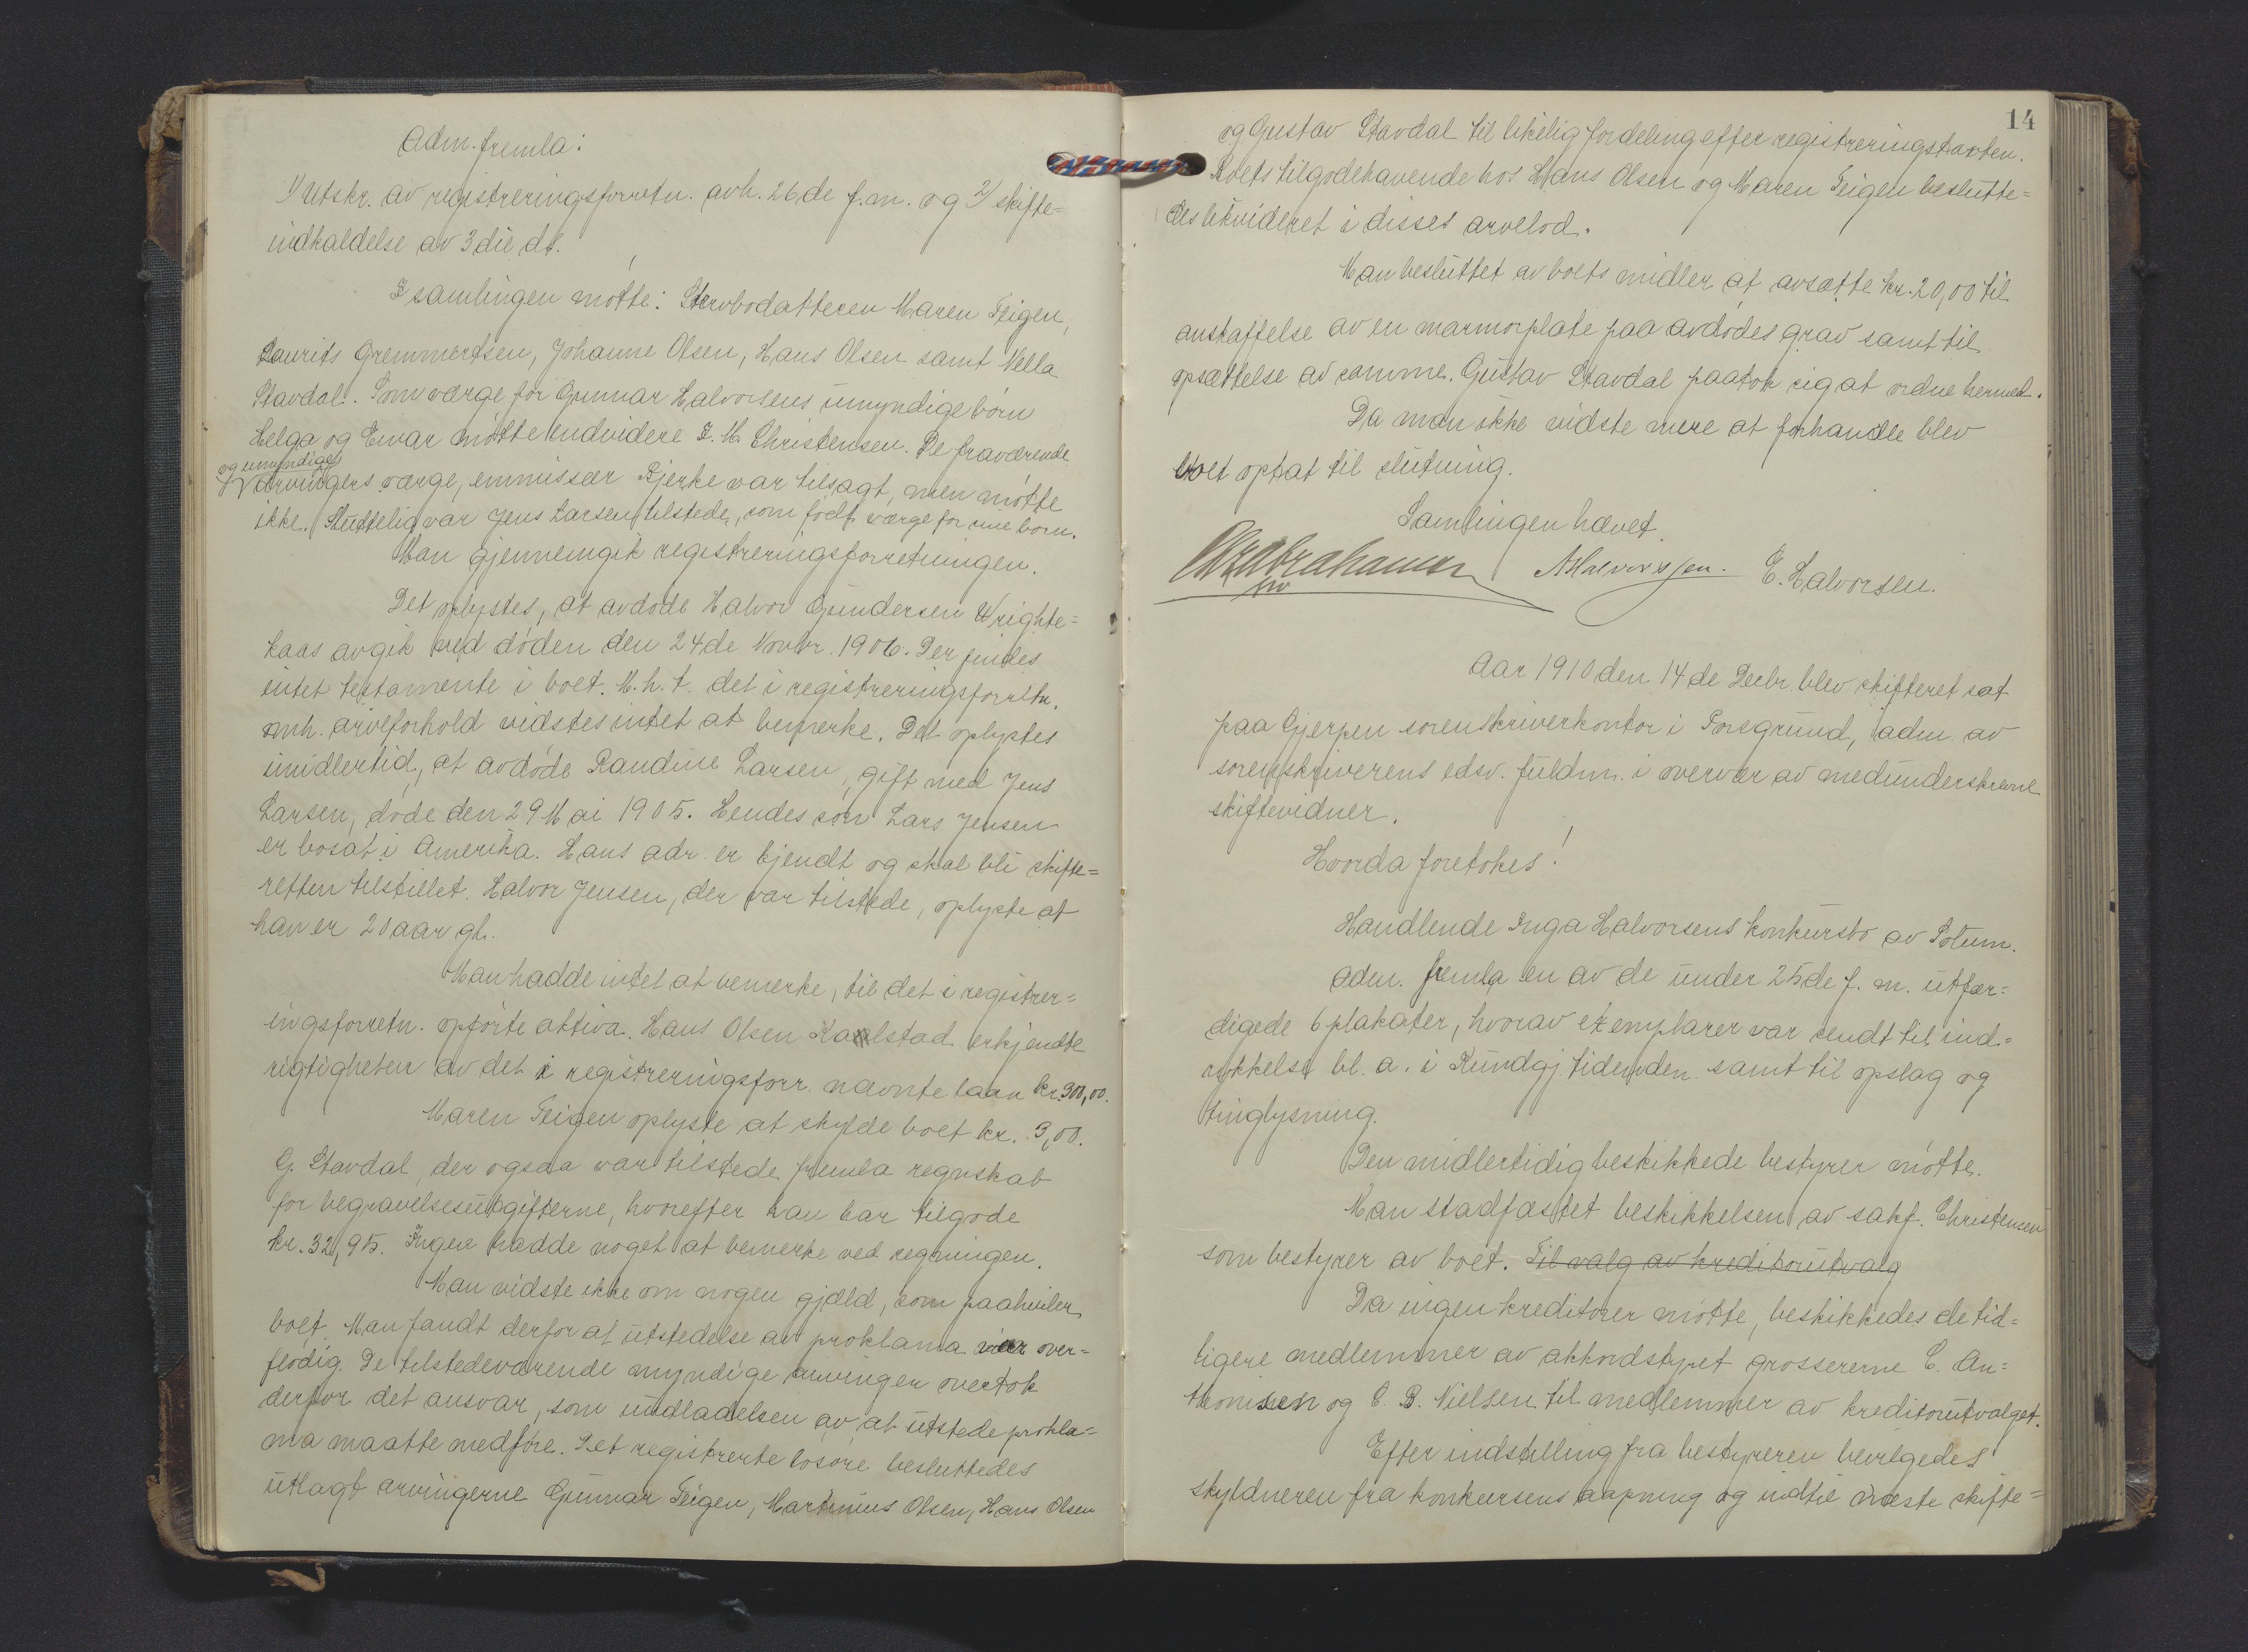 Adm. fremla:
1/ Utskr. av registreringsforretn. avh. 26de f.m. og 2/ skifte=
indkaldelse av 3die ds.
I samlingen møtte: Stervbodatteren Maren Teigen,
Laurits Gremmertsen, Johanne Olsen, Hans Olsen samt Nella
Stavdal. Som værge for Gunnar Halvorsens umyndige børn
Helga og Einar møtte endvidere I. M. Christensen. De fraværende
og umyndige
arvingers værge, emmissær Bjerke var tilsagt, men møtte
ikke. Sluttelig var Jens Larsen tilstede, som født værge for sine børn.
Man gjennemgik registreringsforretningen.
Det oplystes, at avdøde Halvor Gundersen Wrighte=
kaas avgik ved døden den 24de Novbr. 1906. Der findes
intet testamente i boet. M.h.t. det i registreringsforretn.
omh. arveforhold vidstes intet at bemerke. Det oplystes
imidlertid, at avdøde Randine Larsen, gift med Jens
Larsen, døde den 29 Mai 1905. Hendes søn Lars Jensen
er bosat i Amerika. Hans adr. er kjendt og skal bli skifte=
retten tilstillet. Halvor Jensen, der var tilstede, oplyste at
han er 20 aar gl.
Man hadde intet at bemerke, til det i registrer=
ingsforretn. opførte aktiva. Hans Olsen Karlstad erkjendte
rigtigheten av det i registreringsforr. nævnte laan kr. 300,00.
Maren Teigen oplyste at skylde boet kr. 9,00.
G. Stavdal, der ogsaa var tilstede fremla regnskab
for begravelsesutgifterne, hvorefter han har tilgode
kr. 32,95. Ingen hadde noget at bemerke ved regningen.
Man vidste ikke om nogen gjæld, som paahviler
boet. Man fandt derfor at utstedelse av proklama var over=
flødig. De tilstedeværende myndige arvinger overtok
derfor det ansvar, som undladelsen av at utstede prokla=
ma maatte medføre. Det registrerte løsøre besluttedes
utlagt arvingerne Gunnar Teigen, Martinius Olsen, Hans Olsen
14
og Gustav Stavdal til likelig fordeling efter registreringstaxten.
Boets tilgodehavende hos Hans Olsen og Maren Teigen beslutte=
des likvideret i disses arvelod.
Man besluttet av boets midler at avsætte kr. 20,00 til
anskaffelse av en marmorplate paa avdødes grav samt til
opsættelse av samme. Gustav Stavdal paatok sig at ordne hermed.
Da man ikke vidste mere at forhandle blev
boet optat til slutning.
Samlingen hævet.
Abrahamsen
A Halvorsen. E. Halvorsen.
Aar 1910 den 14de Decbr. blev skifteret sat
paa Gjerpen sorenskriverkontor i Porsgrund, adm. av
sorenskriverens edsv. fuldm. i overvær av medunderskrevne
skiftevidner.
Hvorda foretokes!
Handlende Inga Halvorsens konkursbo av Solum.
Adm. fremla en av de under 25de f.m. utfær=
digede 6 plakater, hvorav exemplarer var sendt til ind=
rykkelse bl. a. i Kundgj. tidenden samt til opslag og
tinglysning.
Den midlertidig beskikkede bestyrer møtte.
Man stadfæstet beskikkelsen av sakf. Christensen
som bestyrer av boet. Til valg av kreditorutvalg
Da ingen kreditorer møtte, beskikkedes de tid=
ligere medlemmer av akkordstyret grossererne C. An=
thonisen og C. B. Nielsen til medlemmer av kreditorutvalget.
Efter indstilling fra bestyreren bevilgedes
skyldneren fra konkursens aapning og indtil næste skifte=